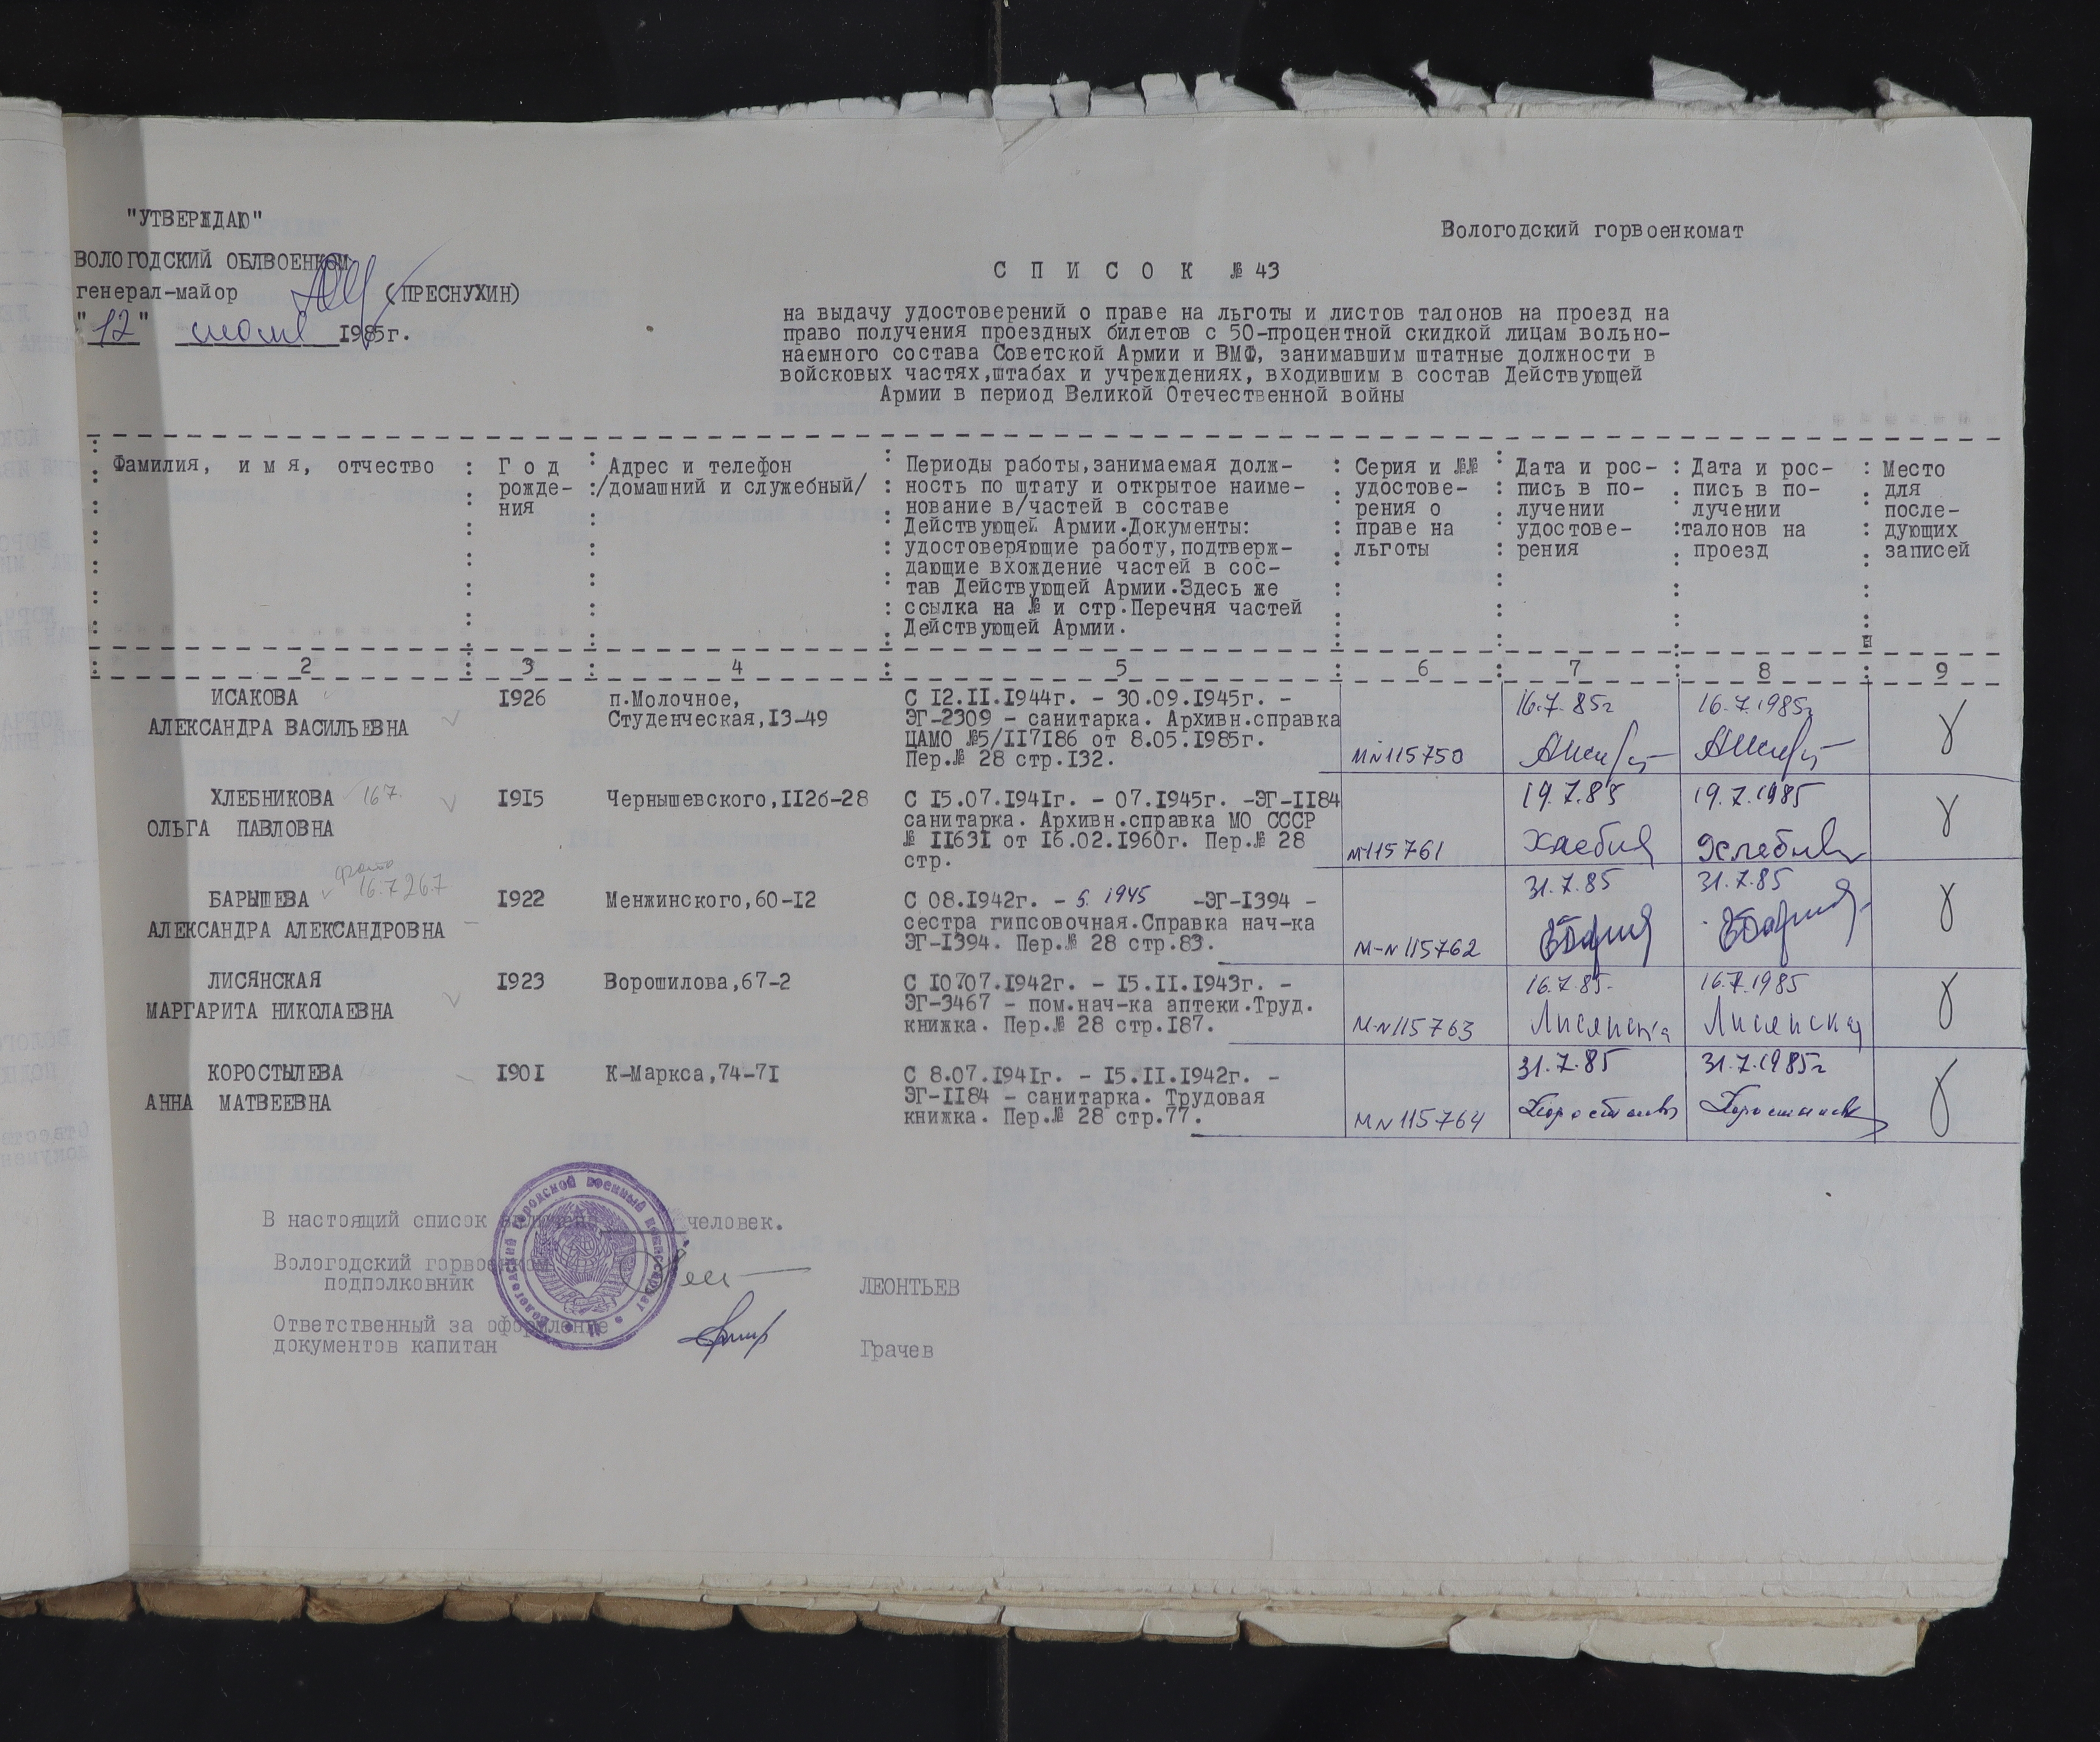 "УТВЕРЖДАЮ"
ВОЛОГОДСКИЙ ОБЛВОЕНКОМ
генерал-майор (ПРЕСНУХИН)
"12" июля 1985г.
Вологодский горвоенкомат
С П И С О К № 43
на выдачу удостоверений о праве на льготы и листов талонов на проезд на
право получения проездных билетов с 50-процентной скидкой лицам вольно-
наемного состава Советской Армии и ВМФ, занимавшим штатные должности в
войсковых частях,штабах и учреждениях, входившим в состав Действующей
Армии в период Великой Отечественной войны
Фамилия, и м я, отчество
Г о д
рожде-
ния
Адрес и телефон
/домашний и служебный/
Периоды работы,занимаемая долж-
ность по штату и открытое наиме-
нование в/частей в составе
Действующей Армии.Документы:
удостоверяющие работу,подтверж-
дающие вхождение частей в сос-
тав Действующей Армии.Здесь же
ссылка на № и стр.Перечня частей
Действующей Армии.
Серия и №№
удостове-
рения о
праве на
льготы
Дата и рос-
пись в по-
лучении
удостове-
рения
Дата и рос-
пись в по-
лучении
талонов на
проезд
Место
для
после-
дующих
записей
н
2 3 4 5 6 7 8 9
ИСАКОВА
АЛЕКСАНДРА ВАСИЛЬЕВНА
I926
п.Молочное,
Студенческая,I3-49
С I2.II.I944г. - 30.09.I945г. -
ЭГ-2309 - санитарка. Архивн.справка
ЦАМО №5/II7I86 от 8.05.I985г.
Пер.№ 28 стр.I32.
М№115750
16.7.85г
16.7.1985г
ХЛЕБНИКОВА 16.7.
ОЛЬГА ПАВЛОВНА
I9I5
Чернышевского,II2б-28
С I5.07.I94Iг. - 07.I945г. -ЭГ-II84
санитарка. Архивн.справка МО СССР
№ II63I от I6.02.I960г. Пер.№ 28
стр.
М-115761
19.7.85
Хлебни
19.7.1985
Хлебник
фото
16.7 26.7
БАРЫШЕВА
АЛЕКСАНДРА АЛЕКСАНДРОВНА
I922
Менжинского,60-I2
С 08.I942г. - 5. 1945 -ЭГ-I394 -
сестра гипсовочная.Справка нач-ка
ЭГ-I394. Пер.№ 28 стр.83.
М-№115762
31.7.85
31.7.85
ЛИСЯНСКАЯ
МАРГАРИТА НИКОЛАЕВНА
I923
Ворошилова,67-2
С I0707.I942г. - I5.II.I943г. -
ЭГ-3467 - пом.нач-ка аптеки.Труд.
книжка. Пер.№ 28 стр.I87.
М-№115763
16.7.85.
Лисянска
16.7.1985
Лисянская
КОРОСТЫЛЕВА
АННА МАТВЕЕВНА
I90I
К-Маркса,74-7I
С 8.07.I94Iг. - I5.II.I942г. -
ЭГ-II84 - санитарка. Трудовая
книжка. Пер.№ 28 стр.77.
М№115764
31.7.85
31.7.1985г
В настоящий список включено ______ человек.
Вологодский горвоенком
подполковник
ЛЕОНТЬЕВ
Ответственный за оформление
документов капитан
Грачев
Вологодский городской военный комиссариат